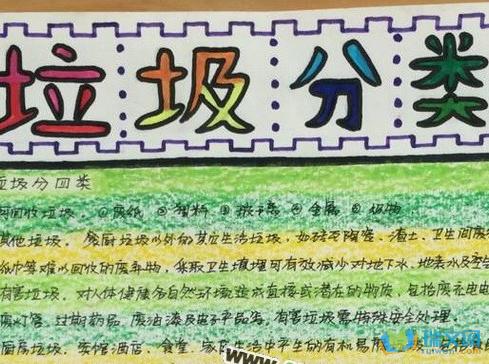 垃圾分类
垃圾分四类
可回收垃圾。①废纸 ②塑料 ③玻璃 ④金属 ⑤织物
其他垃圾。餐厨垃圾以外的其他生活垃圾,如砖瓦陶瓷、渣土、卫生间废
纸巾等难以回收的废弃物,采取卫生填埋可有效减少对地下水、地表水及
有害垃圾。对人体健康与自然环境造成直接或潜在的物质,包括废充电电
废灯管、过期药品、废油漆及电子产品等,有害垃圾需特殊安全处理。
厨房垃圾。宾馆酒店、食堂、家庭生活中产生的有机易腐